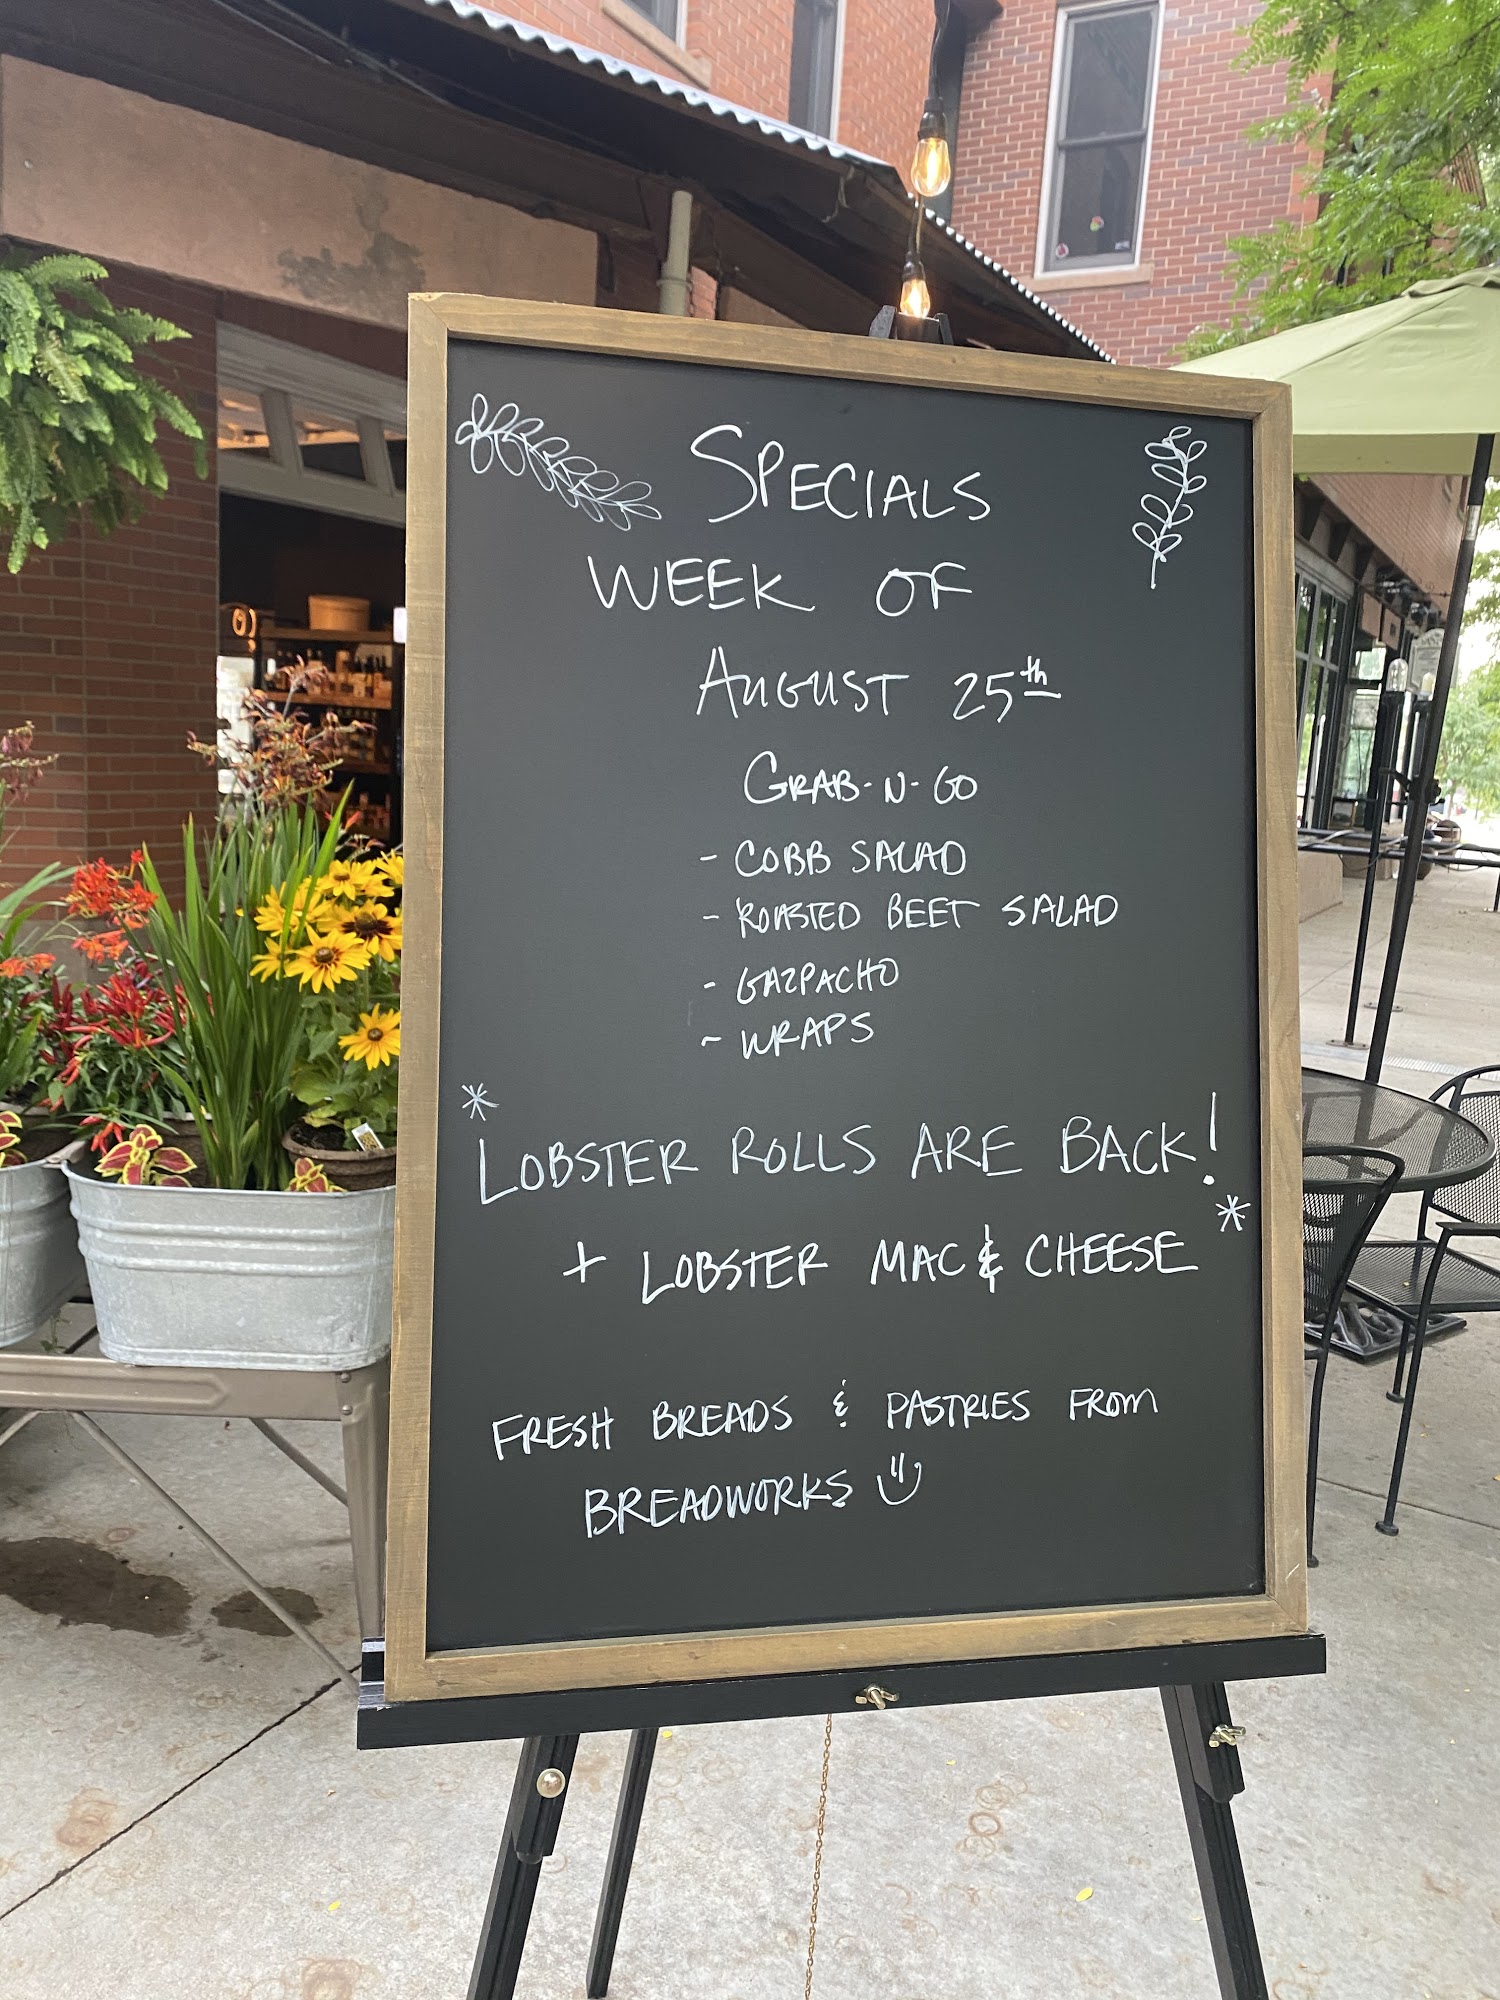 SPECIALS
WEEK OF
AUGUST 25th
GRAB-N-GO
- COBB SALAD
- ROASTED BEET SALAD
- GAZPACHO
- WRAPS
* LOBSTER ROLLS ARE BACK!
+ LOBSTER MAC & CHEESE *
FRESH BREADS & PASTRIES FROM
BREADWORKS